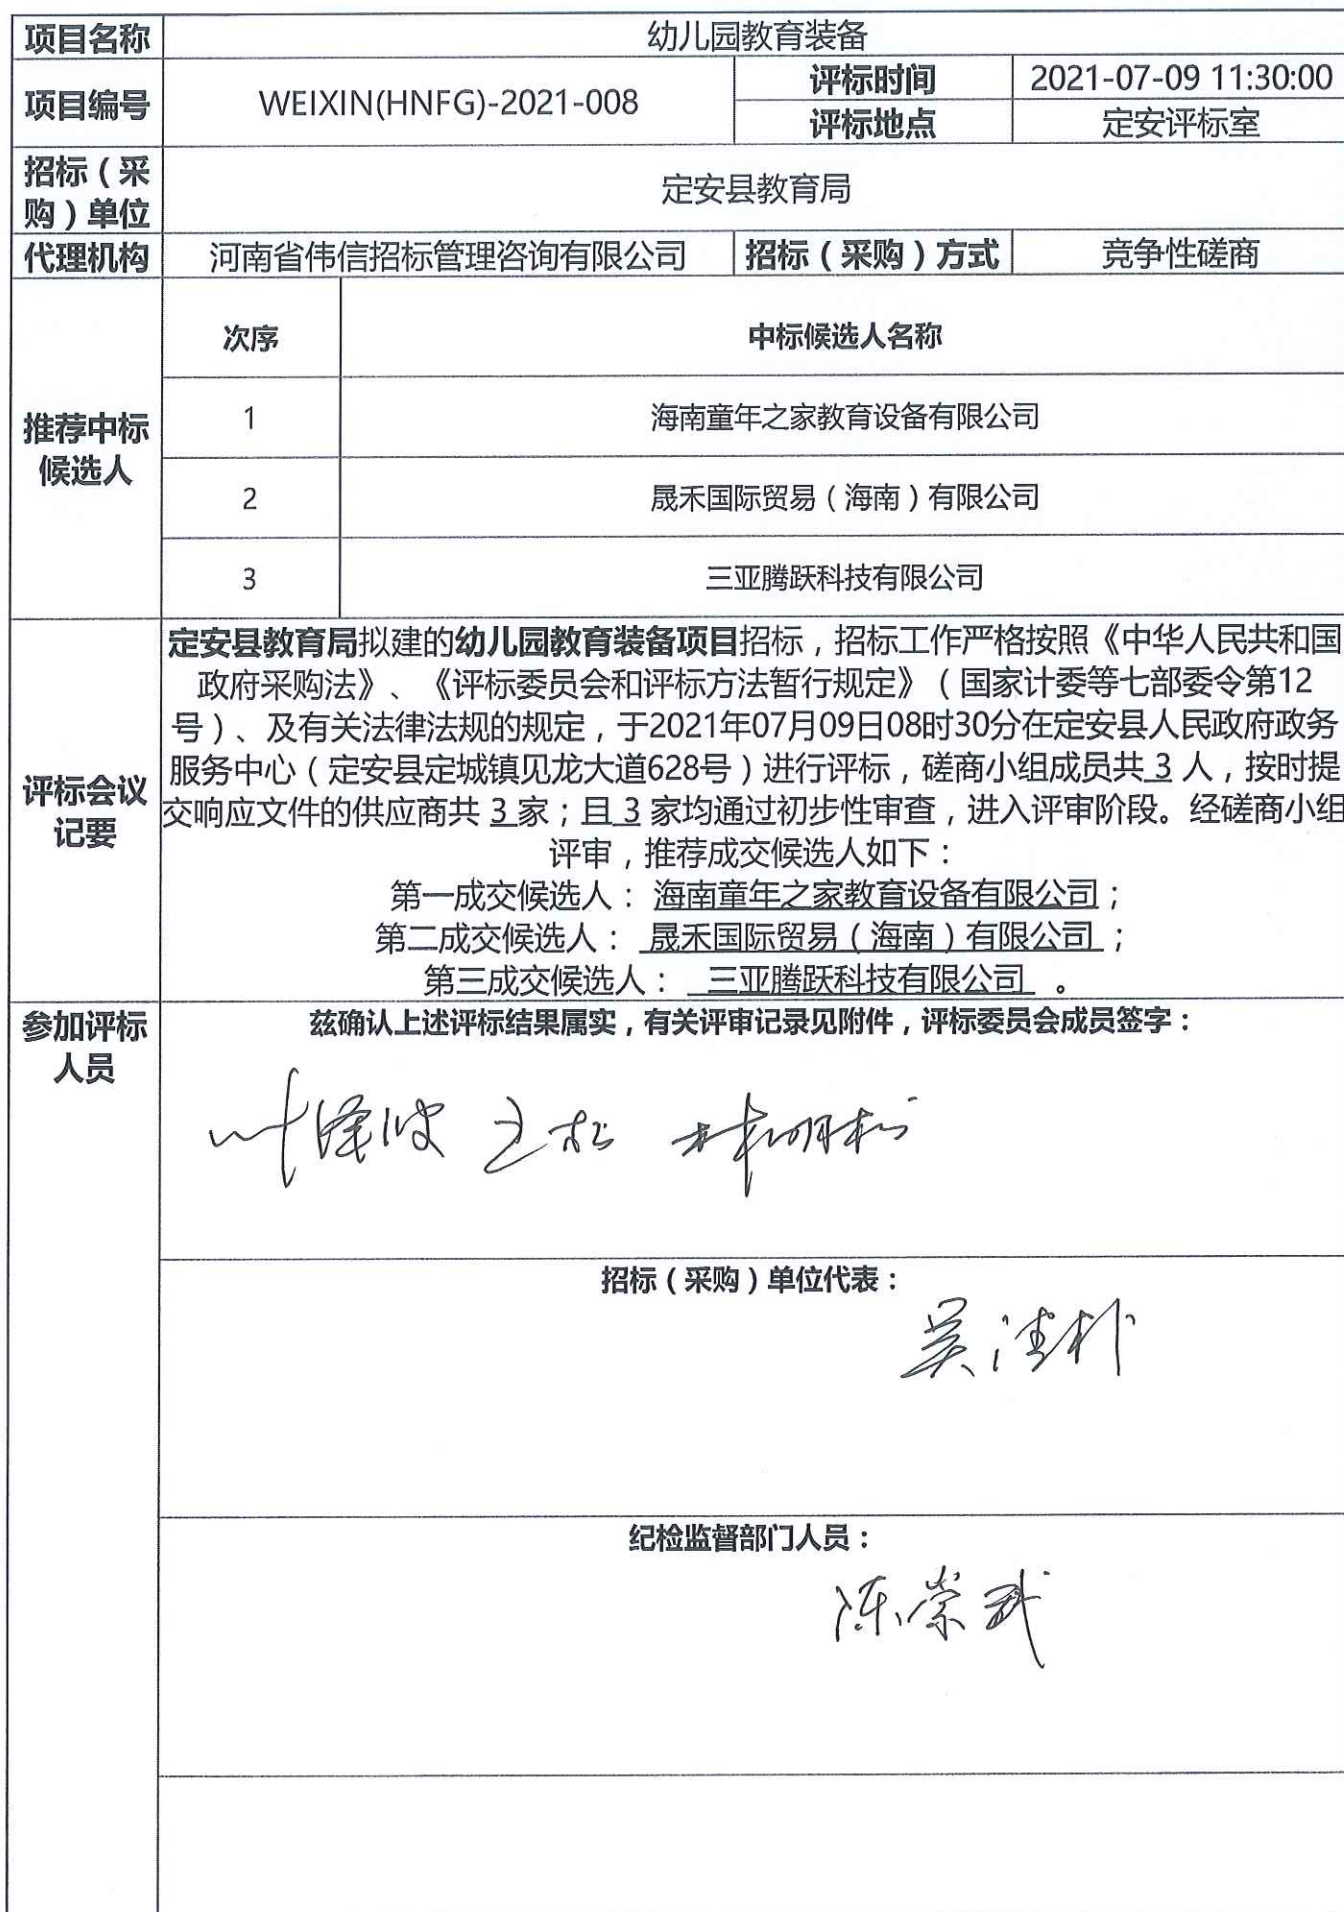 项目名称 幼儿园教育装备
项目编号 WEIXIN(HNFG)-2021-008 评标时间 2021-07-09 11:30:00
评标地点 定安评标室
招标（采
购）单位 定安县教育局
代理机构 河南省伟信招标管理咨询有限公司 招标（采购）方式 竞争性磋商
推荐中标
候选人
次序 中标候选人名称
1 海南童年之家教育设备有限公司
2 晟禾国际贸易（海南）有限公司
3 三亚腾跃科技有限公司
评标会议
记要
定安县教育局拟建的幼儿园教育装备项目招标，招标工作严格按照《中华人民共和国
政府采购法》、《评标委员会和评标方法暂行规定》（国家计委等七部委令第12
号）、及有关法律法规的规定，于2021年07月09日08时30分在定安县人民政府政务
服务中心（定安县定城镇见龙大道628号）进行评标，磋商小组成员共 3 人，按时提
交响应文件的供应商共 3 家；且 3 家均通过初步性审查，进入评审阶段。经磋商小组
评审，推荐成交候选人如下：
第一成交候选人： 海南童年之家教育设备有限公司；
第二成交候选人： 晟禾国际贸易（海南）有限公司；
第三成交候选人： 三亚腾跃科技有限公司 。
参加评标
人员
兹确认上述评标结果属实，有关评审记录见附件，评标委员会成员签字：
叶泽波 王松 林明松
招标（采购）单位代表：
吴清
纪检监督部门人员：
陈荣武